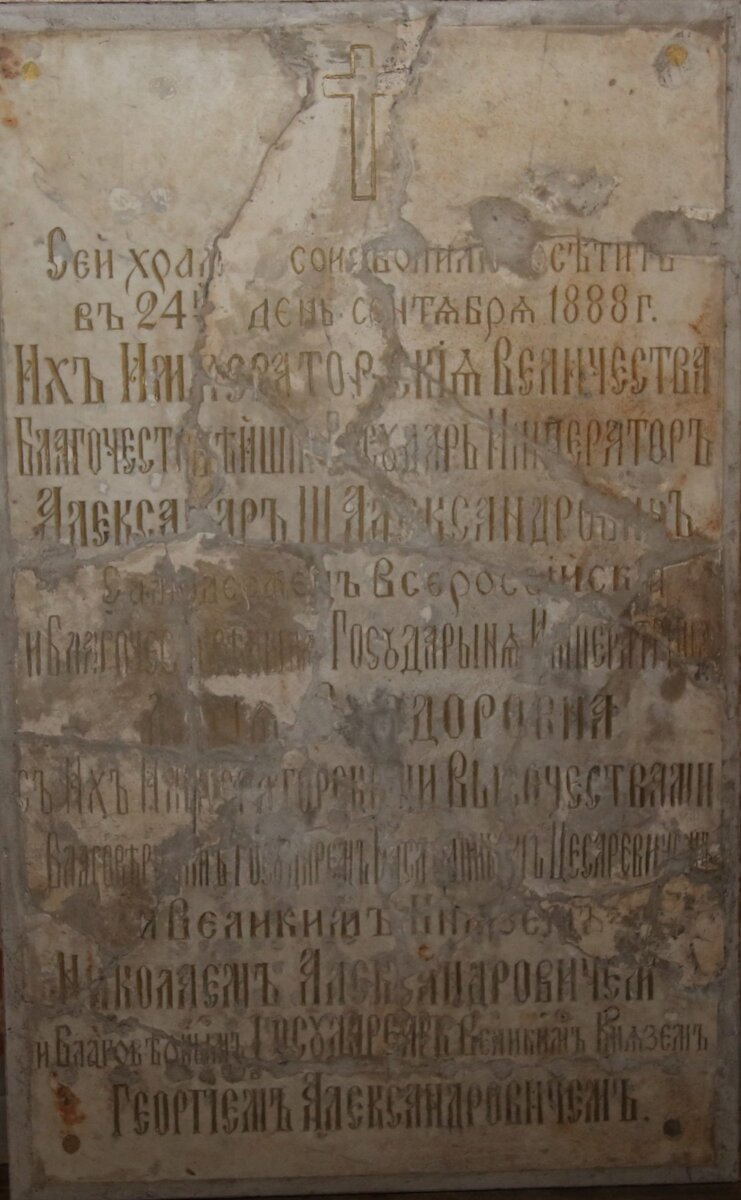 Сей храмъ соизволили посѣтить
въ 24й день сентѧбрѧ 1888 г.
Ихъ Императорскіѧ Величества
Благочестивѣйшій Государь Императоръ
Александръ III Александровичъ
Самодержецъ Всероссійскій
и Благочестивѣйшаѧ Государынѧ Императрица
Ѳеодоровна
съ Ихъ Императорскими Высочествами
Благовѣрнымъ Государемъ Цесаревичемъ
и Великимъ Кнѧземъ
Николаемъ Александровичемъ
и Великимъ Кнѧземъ
Георгіемъ Александровичемъ.